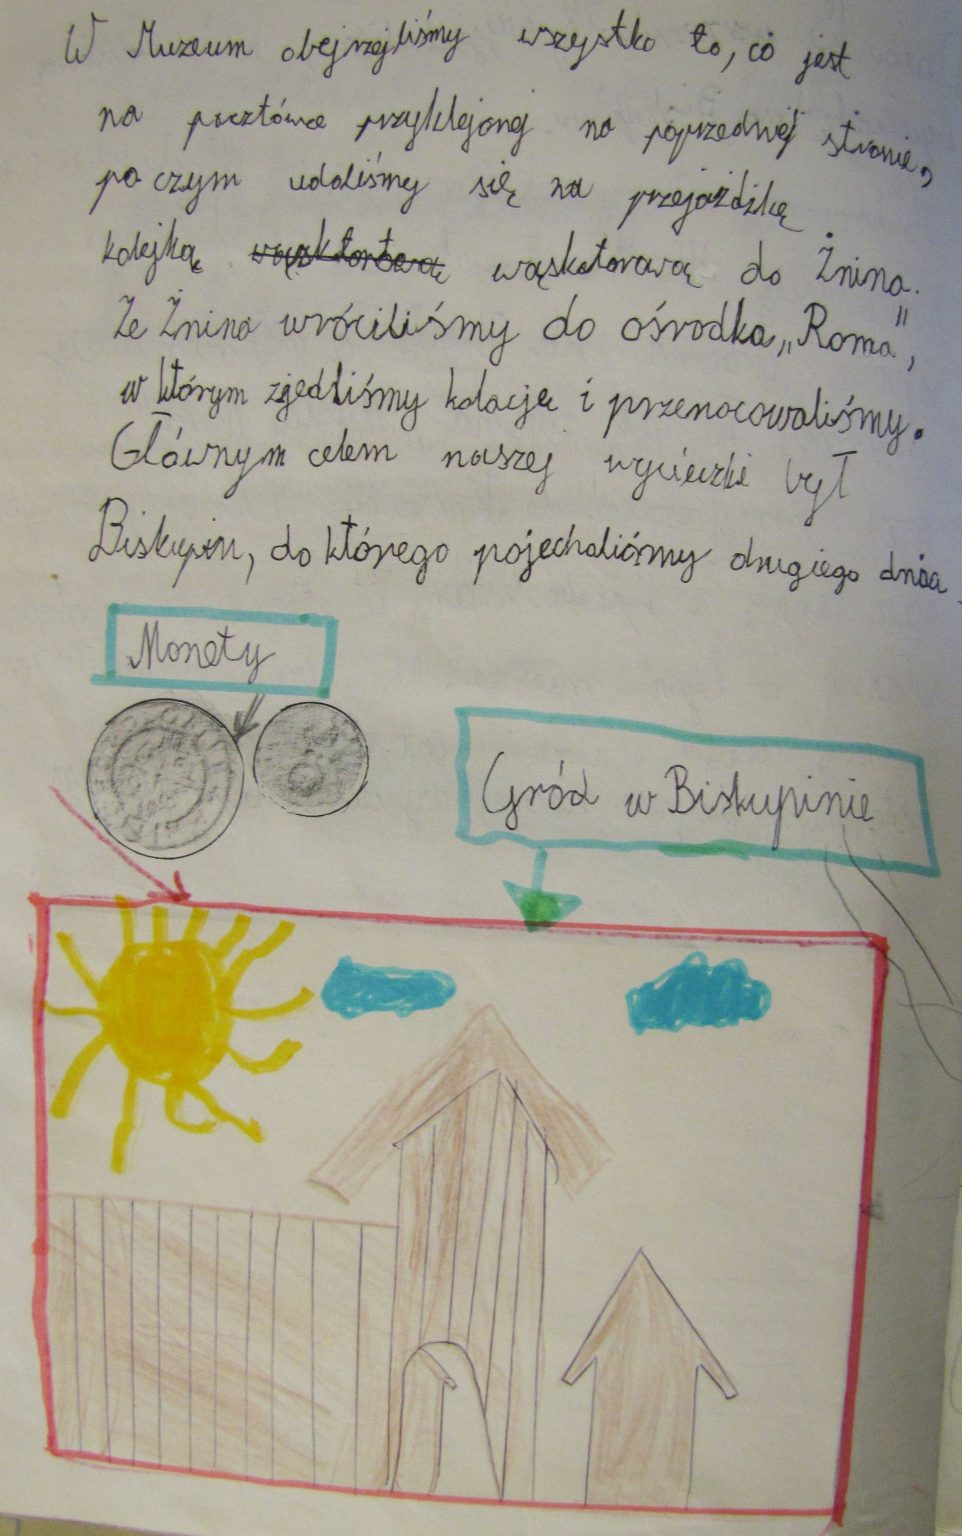 W Muzeum obejrzeliśmy wszystko to, co jest
na pocztówce przyklejonej na poprzedniej stronie,
po czym udaliśmy się na przejażdżkę
kolejką wąskotorową do Żnina.
Ze Żnina wróciliśmy do ośrodka „Roma",
w którym zjedliśmy kolację i przenocowaliśmy.
Głównym celem naszej wycieczki był
Biskupin, do którego pojechaliśmy drugiego dnia.
Monety
Gród w Biskupinie